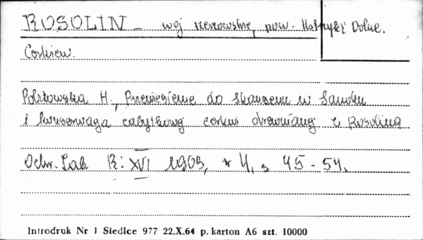 ROSOLIN - woj rzeszowskie, pow. Ustrzyki Dolne.
Cerkiew.
H., Przeniesienie do Skansenu w Sanoku
i konserwacja zabytkowej cerkwi drewnianej z Rosolina
Ochr. Zab R: XVI 1963, z 4, s 45-54.
Introdruk Nr 1 Siedlce 977 22.X.64 p. karton A6 szt. 10000